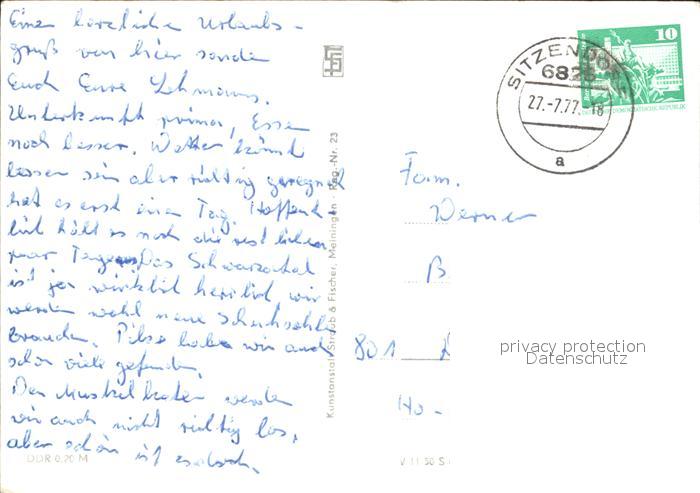 Einen herzliche Urlaubs-
gruß von hier senden
Euch Eure Lehmanns.
Unterkunft prima, Essen
noch besser. Wetter könnte
besser sein aber richtig geregnet
hat es erst einen Tag. Hoffent-
lich hält es noch die restlichen
paar Tage. Das Schwarzatal
ist ja wirklich herrlich, wir
werden wohl neue Schuhsohlen
brauchen. Pilze haben wir auch
schon viele gefunden.
Den Muskelkater werden
wir auch nicht richtig los,
aber schön ist es doch.
DDR 0,20 M
Kunstanstalt Straub & Fischer, Meiningen · Reg.-Nr. 23
SITZENDORF
6825
27.-7.77.-18
a
10
DEUTSCHE DEMOKRATISCHE REPUBLIK
Fam.
Werner
B
801
Ho-
V 11 50 S
privacy protection
Datenschutz